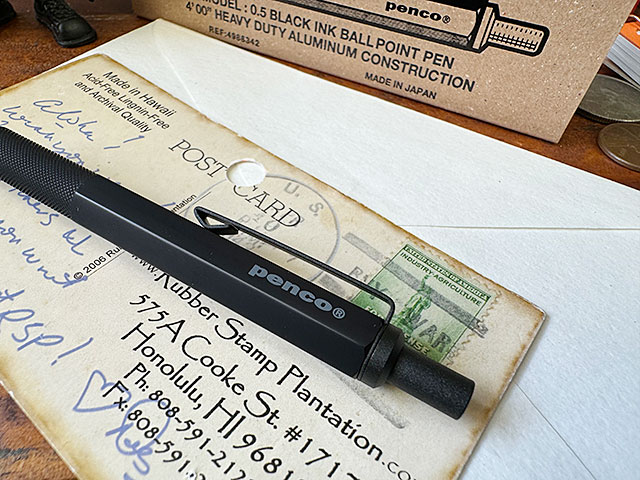 penco®
MODEL : 0.5 BLACK INK BALLPOINT PEN
4' 00" HEAVY DUTY ALUMINUM CONSTRUCTION
REF:4988342
MADE IN JAPAN
Made in Hawaii
Acid-Free Lingnin-Free
and Archival Quality
Aloha!
POST CARD
U. S.
UNITED STATES OF AMERICA
INDUSTRY·AGRICULTURE
© 2006 Ru
ntation
penco®
www.Rubber Stamp Plantation.co
575 A Cooke St. #171
Honolulu, HI 9681
Ph: 808-591-212
Fx: 808-591-2
RSP!